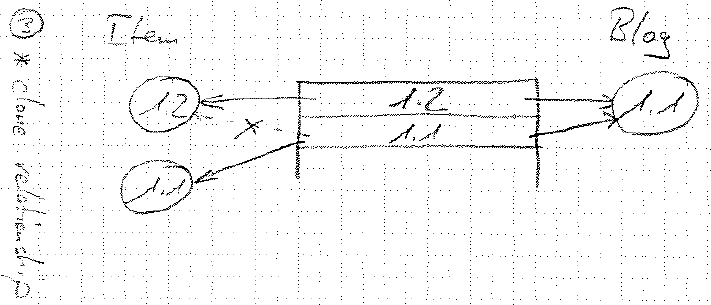 ③ * clone relationship
Item
Blog
1.2
1.2
1.1
x
1.1
1.1